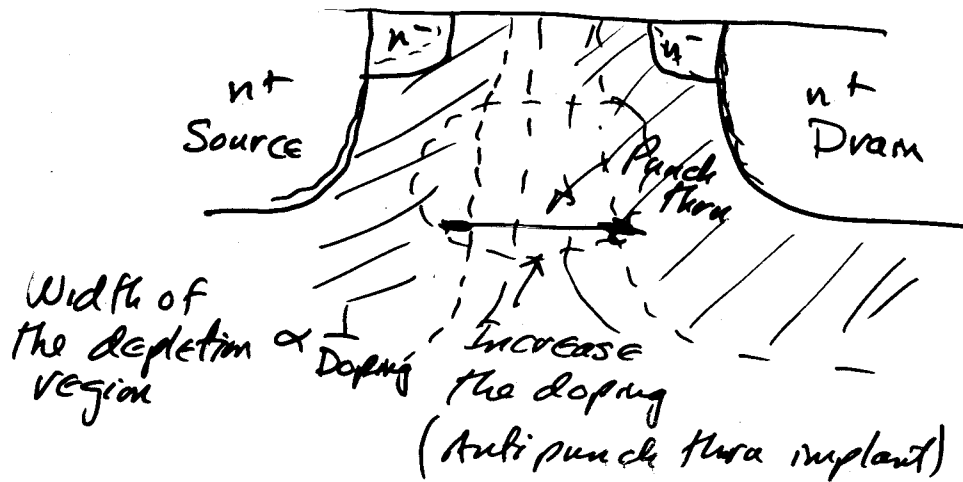 n-
n-
n+
Source
n+
Drain
Punch
thru
p
Width of
the depletion ∝ 1/Doping
region
Increase
the doping
(Anti punch thru implant)